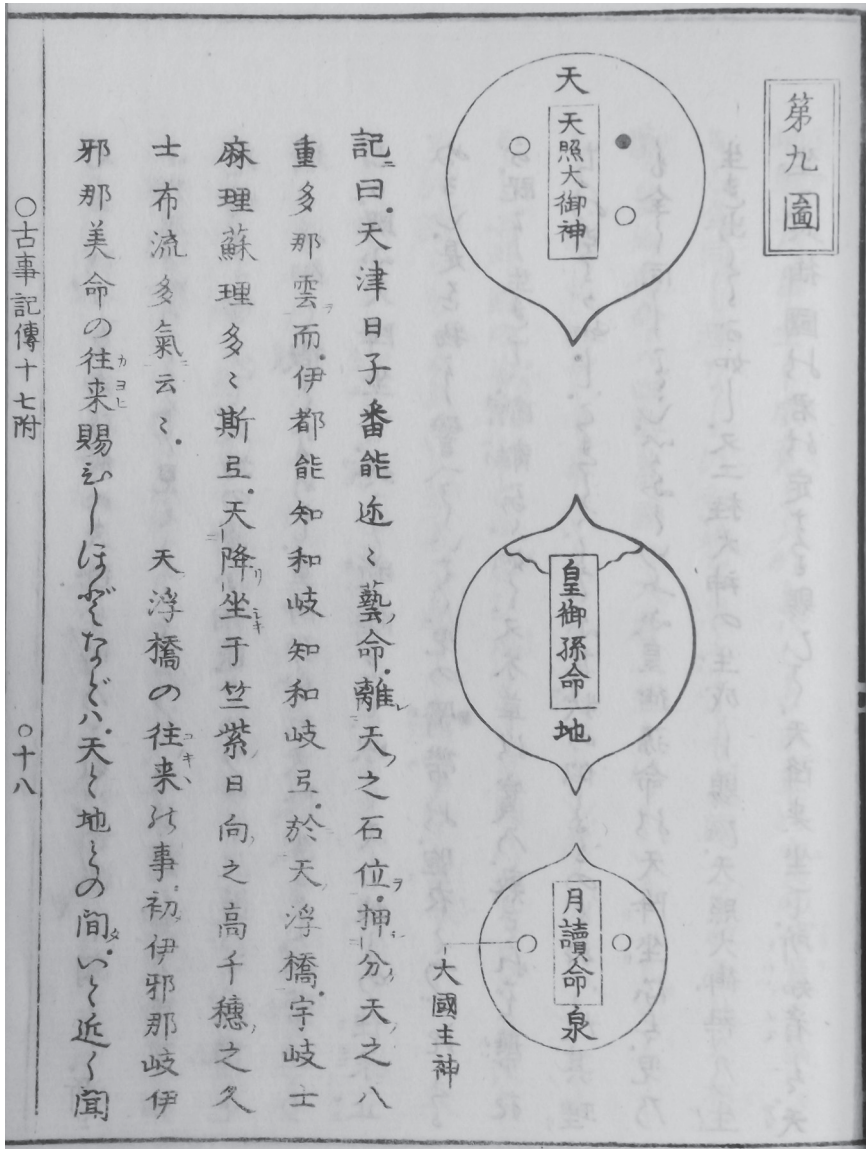 第九圖
天
天照大御神
皇御孫命
地
月讀命
泉
大國主神
記ニ曰。天津日子番能迩々藝ノ命。離レ天ノ之石位ヲ。押シ分ケ天ノ之八
重多那雲ヲ而。伊都能知和岐知和岐弖。於天ノ浮橋。宇岐士
麻理蘇理多々斯弖。天降リ坐シキ于竺紫ノ日向ノ之高千穗ノ之久
士布流多氣ニ云々。　天浮橋の往来ユキヽの事。初メ伊邪那岐伊
邪那美命の往来カヨヒ賜ひしほどなどハ。天と地との間タ。いと近く聞
○古事記傳十七附
○十八